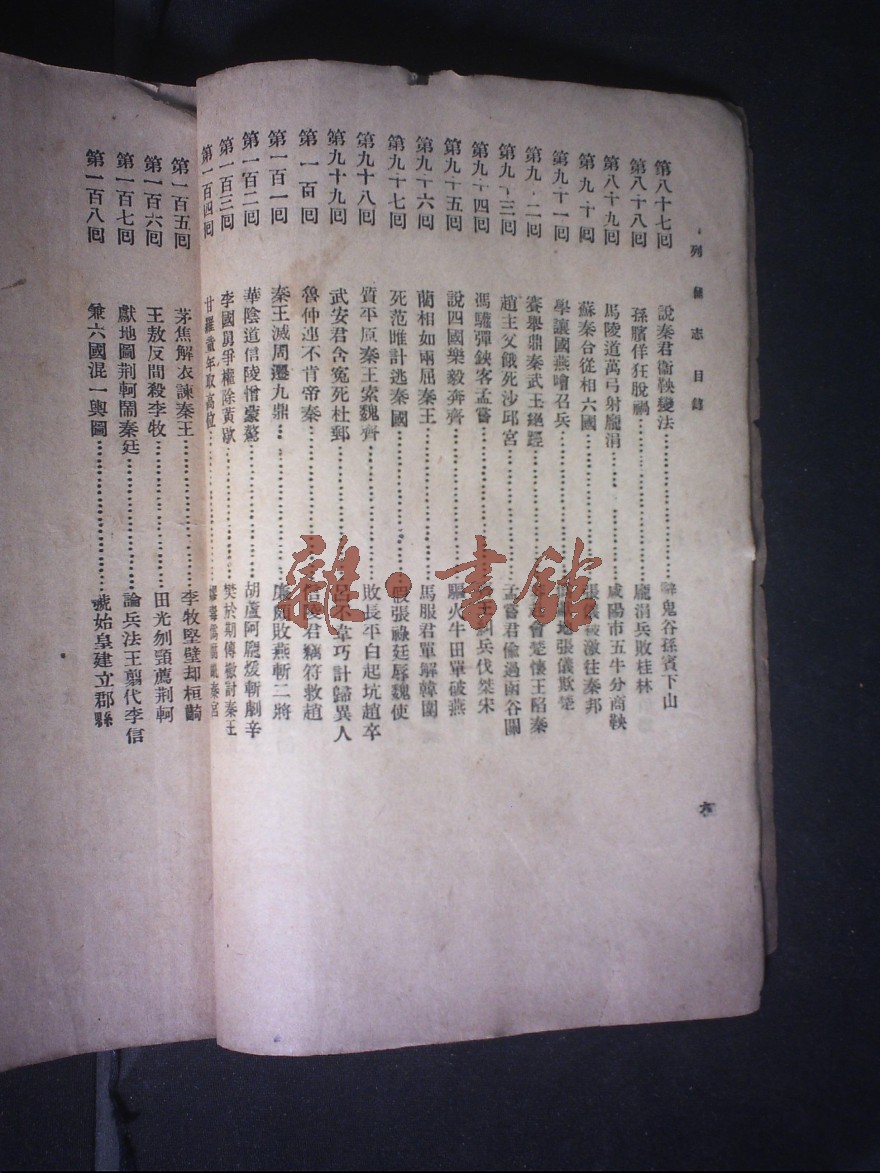 列國志目錄
第八十七回 說秦君衛鞅變法 辭鬼谷孫賓下山
第八十八回 孫臏佯狂脫禍 龐涓兵敗桂林
第八十九回 馬陵道萬弓射龐涓 咸陽市五牛分商鞅
第九十回 蘇秦合從相六國 張儀被激往秦邦
第九十一回 學讓國燕噲召兵 地張儀欺楚
第九十二回 賽舉鼎秦武王絕脛 會楚懷王陷秦
第九十三回 趙主父餓死沙邱宮 孟嘗君偷過函谷關
第九十四回 馮驩彈鋏客孟嘗 王糾兵伐桀宋
第九十五回 說四國樂毅奔齊 驅火牛田單破燕
第九十六回 藺相如兩屈秦王 馬服君單解韓圍
第九十七回 死范雎計逃秦國 假張祿廷辱魏使
第九十八回 質平原秦王索魏齊 敗長平白起坑趙卒
第九十九回 武安君含冤死杜郵 呂不韋巧計歸異人
第一百回 魯仲連不肯帝秦 信陵君竊符救趙
第一百一回 秦王滅周遷九鼎 廉頗敗燕斬二將
第一百二回 華陰道信陵憎蒙驁 胡蘆阿龐煖斬劇辛
第一百三回 李國舅爭權除黃歇 樊於期傳檄討秦王
第一百四回 甘羅童年取高位 秦宮
第一百五回 茅焦解衣諫秦王 李牧堅壁却桓齮
第一百六回 王敖反間殺李牧 田光刎頸薦荊軻
第一百七回 獻地圖荊軻鬧秦廷 論兵法王翦代李信
第一百八回 兼六國混一輿圖 號始皇建立郡縣
六
雜·書館